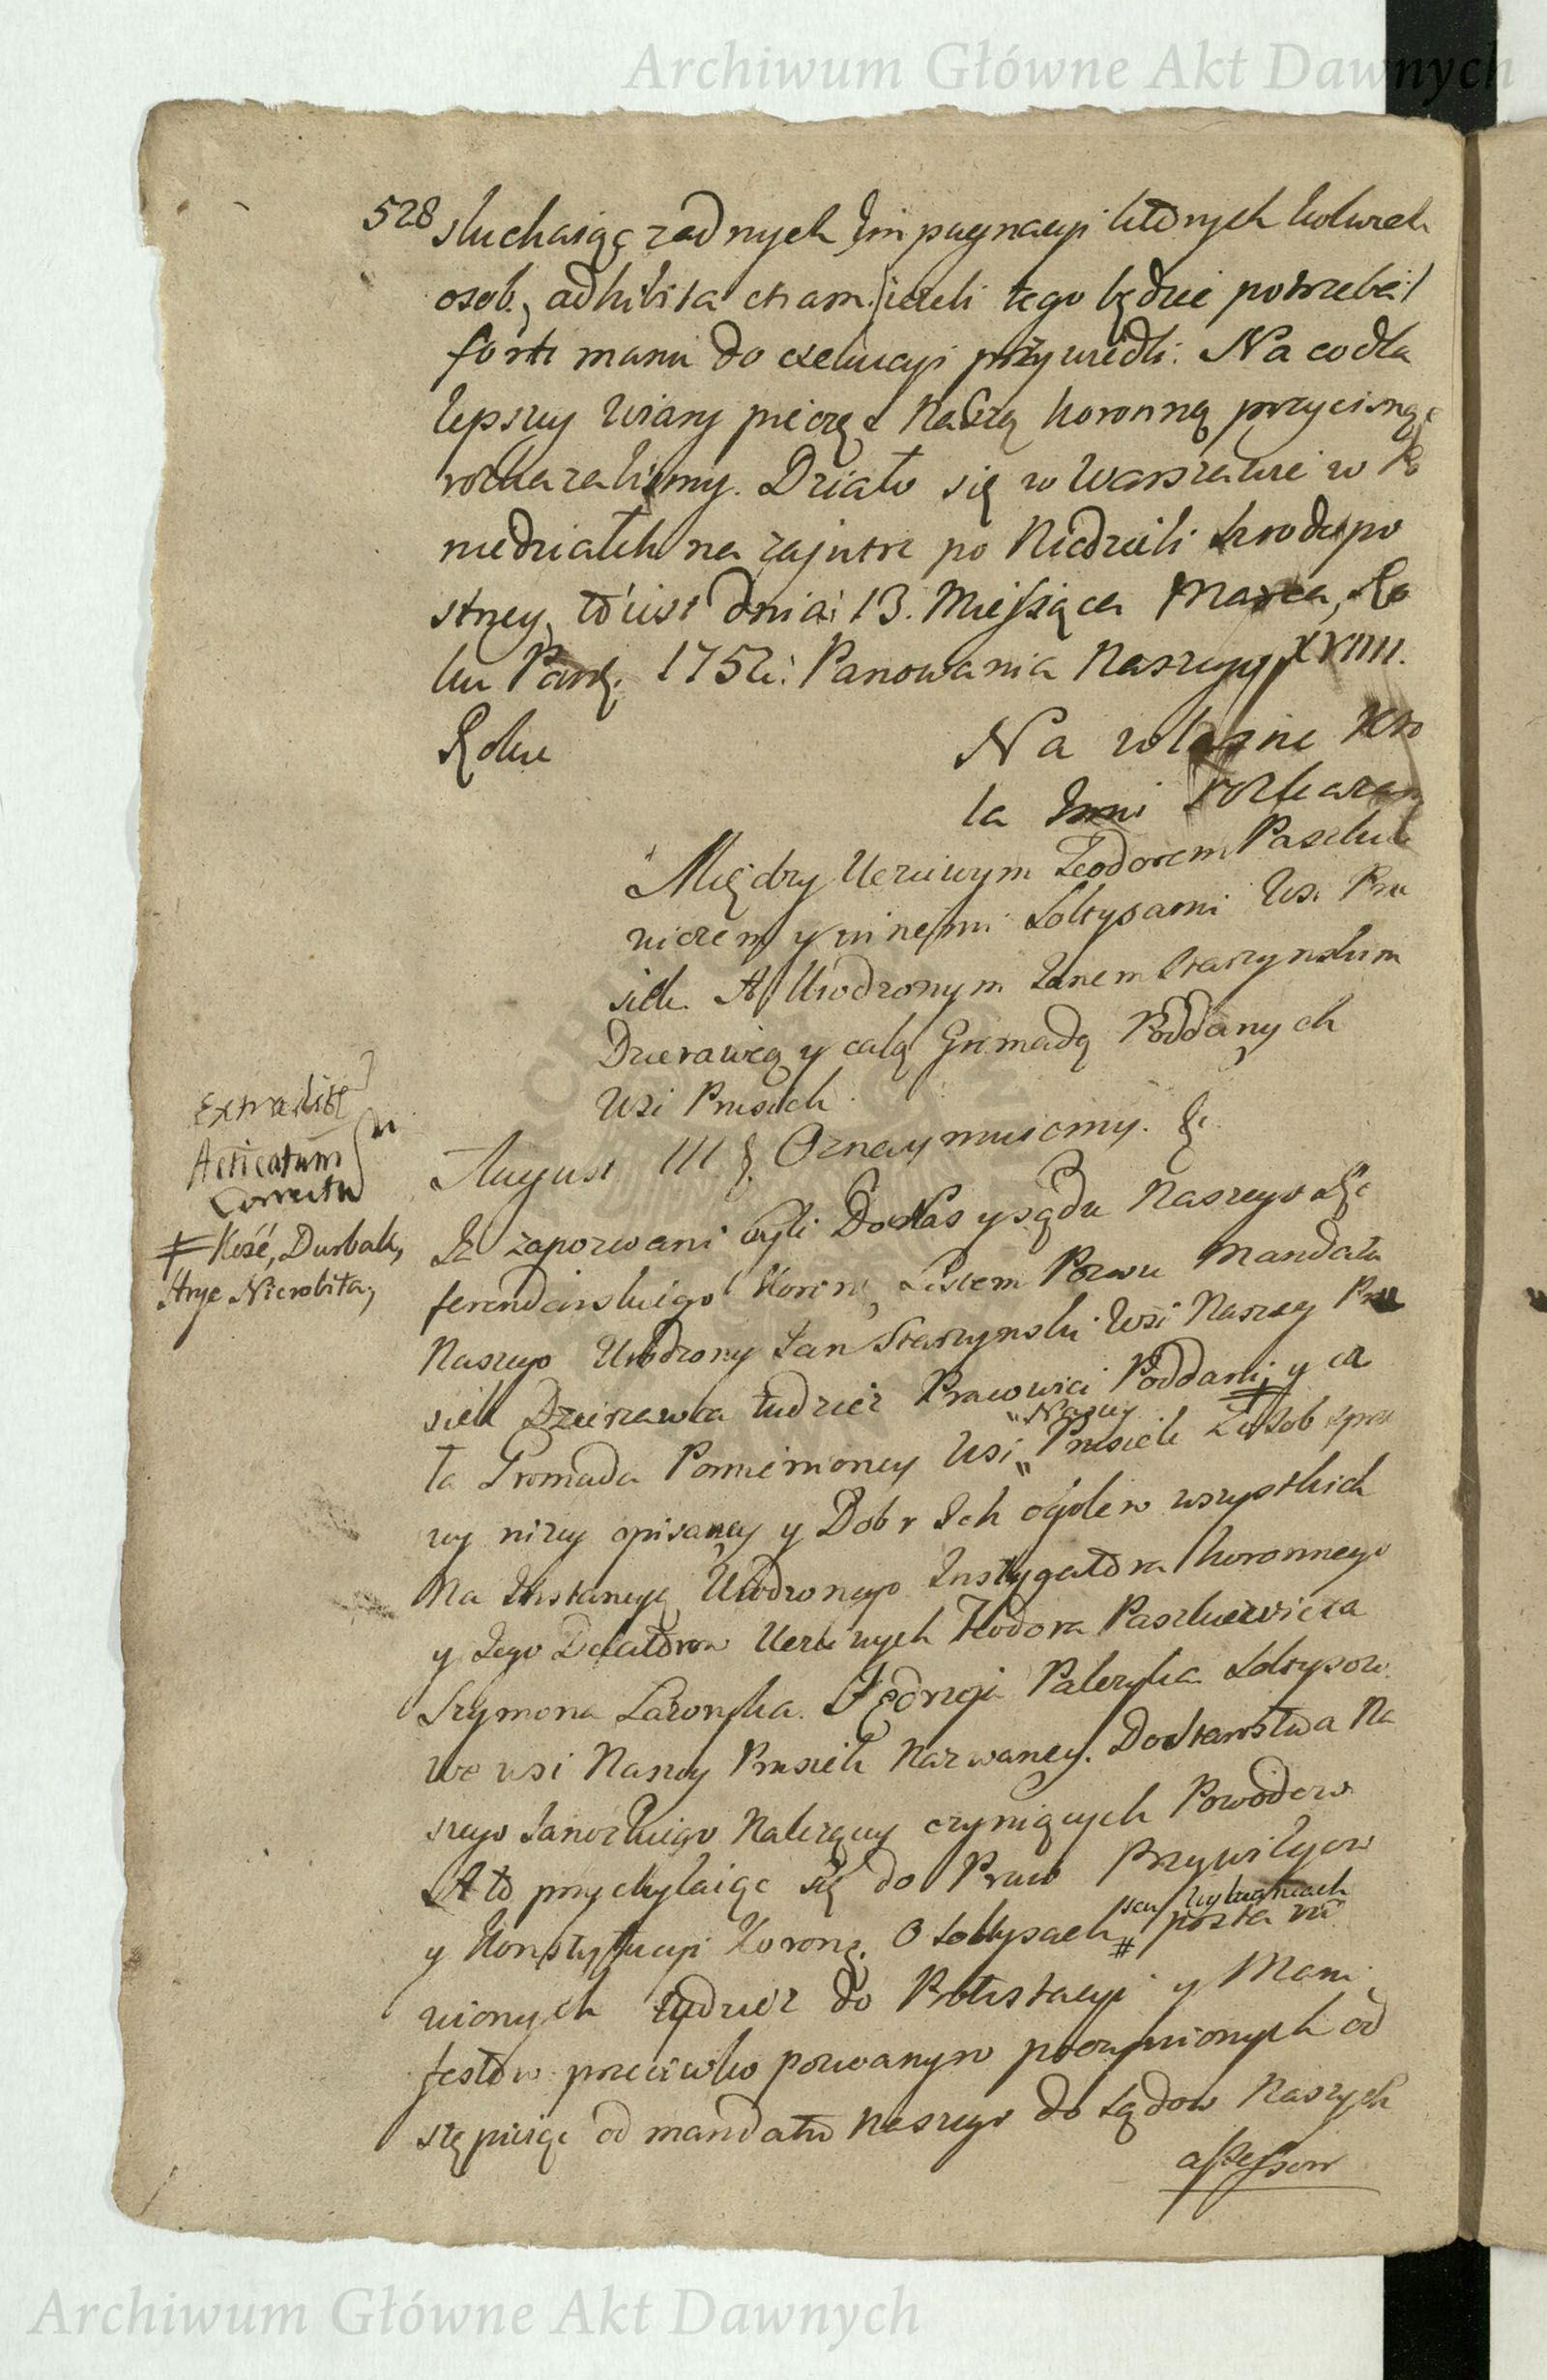 Archiwum Główne Akt Dawnych
528 słuchaiąc żadnych Impugnacyi którychkolwiek
osob, adhibita etiam /:ieżeli tego będzie potrzeba:/
forti manu do exekucyi przywiedli. Na co dla
lepszey wiary pieczęć Naszą koronną przycisnąć
rozkazalismy. Działo się w Warszawie w Po
niedziałek na zajutrz po Niedzieli srodopo
stney, to iest dnia 13. Miesiąca Marca, Ro
ku Pańs. 1752. Panowania Naszego XVIIII.
Roku
Na własne Kro
la Jmci rozkazan
Między Uczciwym Teodorem Paszkie
wiczem y innemi Sołtysami Wsi Pru
siek. A Urodzonym Janem Starzynskim
Dzierawcą y całą Gromadą Poddanych
Wsi Prusiek
August III §. Oznaymuiemy. &c.
Iż zapozwani byli Do Nas y sądu Naszego Re
ferendarskiego Koronn. Listem Pozwu Mandatu
Naszego Urodzony Jan Starzynski Wsi Naszey Pru
siek Dzierzawca tudzież Pracowici Poddani # y ca
ła Gromada Pomienioney Wsi " Naszey " Prusiek Z osob spra
wy nizey opisaney y Dobr Ich ogołem wszystkich
Na Instancyę Urodzonego Instygatora koronnego
y Jego Delatorow Uczciwych Teodora Paszkiewicza
Szymona Jędrzeja Sołtysow
we wsi Naszey Prusiek Nazwaney. Do Starostwa Na
szego Sanockiego Nalezącey czyniących Powodow
A to przychylaiąc się do Praw Przywileyow
y Konstytucyi Koronn. O Sołtysach # seu Wybrańcach posta no
wionych tudzież do Protestacyi y Mani
festow przeciwko pozwanym poczynionych od
stępuiąc od mandatu Naszego do Sądow Naszych
assessor
Extradit
Acticatum
Correctu
# Kość, Durbak,
Hryc Nierobiła,
Archiwum Główne Akt Dawnych